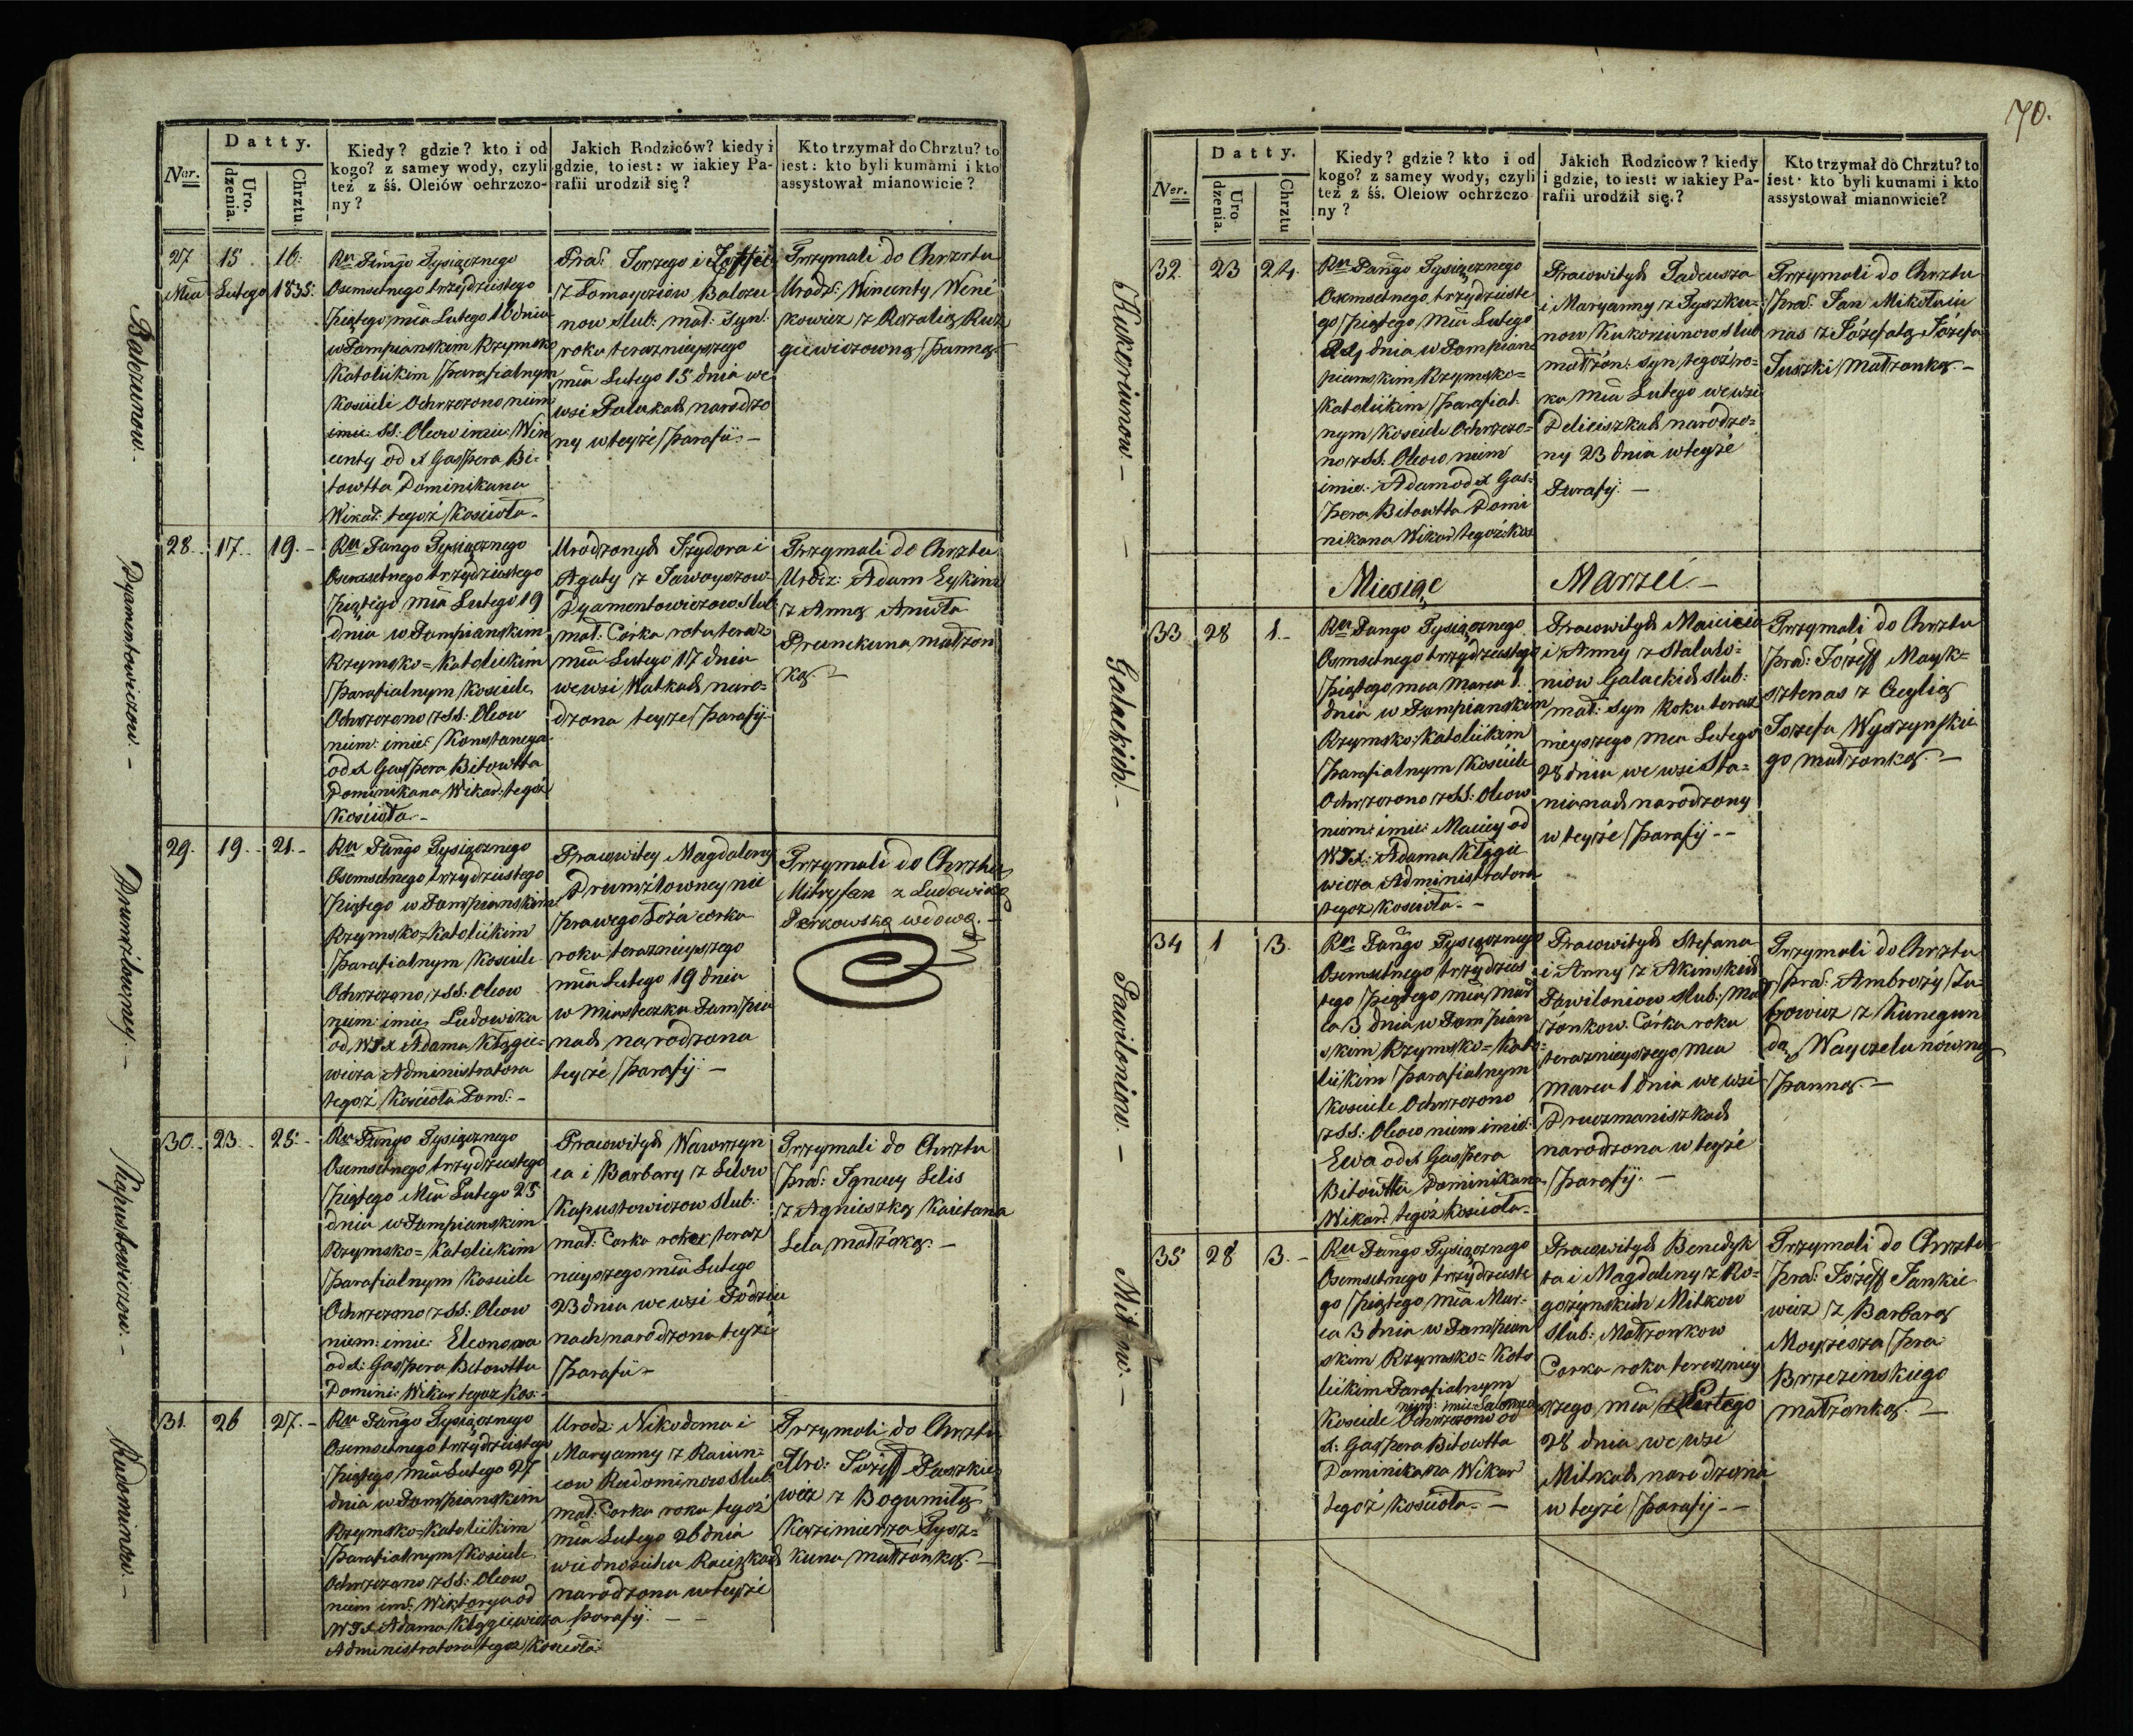 70.
Datty.
Ner.
Uro.
dzenia.
Chrztu
Kiedy? gdzie? kto i od
kogo? z samey wody, czyli
też z śś. Oleiów ochrzczo-
ny?
Jakich Rodziców? kiedy i
gdzie, to iest: w iakiey Pa-
rafii urodził się?
Kto trzymał do Chrztu? to
iest: kto byli kumami i kto
assystował mianowicie?
Balczunow.-
27
Mca
15
Lutego
16.
1835.
Ru Pańgo Tysiącznego
Osemsetnego trzydziestego
piątego mca Lutego 16 dnia
w Pompianskim Rzymsko
Katolickim parafialnym
Kosciele Ochrzczono niem
SS: Oleow imie: Win
centy od X Gaspera Bi-
towtta Dominikana
Wikar: tegoż Kościoła.-
Prac: Jerzego i Zoffii
z Tomaycziow Balczu
now slub: mał: syn.
roku teraznieyszego
mca Lutego 15 dnia we
wsi Palukach narodzo
ny w teyże parafii.-
Trzymali do Chrztu
Urodz: Wincenty Wenc
kowicz z Rozalią Ruz
giewiczowną panną.
Dyamentowiczow.-
28.-
17.
19.-
Ru Pańgo Tysiącznego
Osemsetnego trzydziestego
piątego mca Lutego 19
dnia w Pompianskim
Rzymsko=Katolickim
parafialnym Kosciele
Ochrzczono z SS: Oleow
niem: imie: Konstancya
od X Gaspera Bitowtta
Dominikana Wikar: tegoż
Kościoła.-
Urodzonych Izydora i
Agaty z Jawoyszow
Dyamentowiczow slub:
mał: Córka roku teraz
mca Lutego 17 dnia
we wsi Watkach naro=
dzona teyże parafij
Trzymali do Chrztu
Urodz: Adam Eykin
z Anną Anioła
Prunckuna małżon
ką.-
Drumżtowney.-
29.
19.-
21.-
Ru Pańgo Tysiącznego
Osemsetnego trzydziestego
piątego w Pompianskim
Rzymsko=Katolickim
parafialnym Kosciele
Ochrzczono z SS: Oleow
niem: imie Ludowika
od WJX Adama Kłągie=
wicza Administratora
tegoż Kościoła Pom.-
Pracowitey Magdaleny
Drumżtowney nie
prawego łoża corka
roku teraznieyszego
mca Lutego 19 dnia
w Miasteczku Pompia
nach narodzona
teyże parafij -
Trzymali do Chrztu
Mitryfan z Ludowiką
Perkowską wdową.-
Kapustowiczow.-
30.-
23.-
25.-
Ru Pańgo Tysiącznego
Osemsetnego trzydziestego
piątego Mca Lutego 25
dnia w Pompianskim
Rzymsko=Katolickim
parafialnym Kosciele
Ochrzczono z SS: Oleow
niem: imie: Eleonowa
od X: Gaspera Bitowtta
Domini: Wikar tegoz kos:-
Pracowitych Wawrzyn
ca i Barbary z Lelow
Kapustowiczow slub:
mał: Corka roku teraz
nieyszego mca Lutego
23 dnia we wsi Podziu
nach narodzona teyże
parafii -
Trzymali do Chrztu
prac: Ignacy Lelis
z Agnieszką Kaietana
Lela małżoką.-
Radominow.-
31.
26
27.-
Ru Pańgo Tysiącznego
Osemsetnego trzydziestego
piątego mca Lutego 27
dnia w Pompianskim
Rzymsko=Katolickim
parafialnym Kosciele
Ochrzczono z SS: Oleow
niem im: Wiktorya od
WJX Adama Kłągiewicza
Administratora tegoz Kościoła:
Urodz: Nikodema i
Maryanny z Raiun=
cow Radominow slub
mał: Corka roku tegoż
mca Lutego 26 dnia
w iednosielu Raciszkach
narodzona w teyże
parafij: - -
Trzymali do Chrztu
Uro: Jozeff Paszkie
wicz z Bogumiłą
Kazimierza Tysz=
kuna małżonką.-
Datty.
Ner.
Uro
dzenia.
Chrztu
Kiedy? gdzie? kto i od
kogo? z samey wody, czyli
tez z śś. Oleiow ochrzczo
ny?
Jakich Rodzicow? kiedy
i gdzie, to iest: w iakiey Pa-
rafii urodził się.?
Kto trzymał do Chrztu? to
iest: kto byli kumami i kto
assystował mianowicie?
Kukoriunow.-
32.
23
24.
Ru Pańgo Tysiącznego
Osemsetnego trzydzieste
go piątego Mca Lutego
24 dnia w Pompian=
pianskim Rzymsko=
Katolickim parafial.
nym Kosciele Ochrzczo=
no z SS: Oleow niem
imie: Adam od X Gas=
pera Bitowtta Domi
nikana Wikar tegoż kos
Pracowitych Tadeusza
i Maryanny z Tyszku=
now Kukoriunow slub
małżon: syn tegoż ro=
ku mca Lutego we wsi
Deliciszkach narodzo=
ny 23 dnia w teyże
Parafij.-
Trzymali do Chrztu
prac: Jan Mikołaiu
nas z Józefatą Józefa
Juszki małżonką.-
Miesiąc Marzec.-
Galackich.-
33.
28
1.-
Ru Pańgo Tysiącznego
Osemsetnego trzydziestego
piątego mca Marca 1
dnia w Pompianskim
Rzymsko:Katolickim
parafialnym Kosciele
Ochrzczono z SS: Oleow
niem: imie: Maciey od
WJX: Adama Kłągie
wicza Administratora
tegoz Kościoła.-
Pracowitych Macieia
i Anny z Stalulo=
niow Galackich slub:
mał: syn Roku teraz
nieyszego mca Lutego
28 dnia we wsi Sta=
nionach narodzony
w teyże parafij --
Trzymali do Chrztu
prac: Jozeff Mayk=
sztenas z Cecylią
Jozefa Wyszynskie
go małżonką.-
Pawiloniow.-
34
1
3.
Ru Pańgo Tysiącznego
Osemsetnego trzydzies
tego piątego mca Mar
ca 3 dnia w Pompian
skim Rzymsko=Kato=
lickim parafialnym
Kosciele Ochrzczono
z SS: Oleow niem imie:
Ewa od X Gaspera
Bitowtta Dominikana
Wikar: tegoż Kościoła.-
Pracowitych Stefana
i Anny z Akinskich
Pawiloniow slub: Mał
żonkow. Córka roku
teraznieyszego mca
Marca 1 dnia we wsi
Druczmaniszkach
narodzona w teyże
parafij.-
Trzymali do Chrztu
prac: Ambroży Ju-
bowicz z Kunegun
dą Wayczelunówną
panną.-
Mitkow.-
35
28
3.-
Ru Pańgo Tysiącznego
Osemsetnego trzydzieste
go piątego mca Mar=
ca 3 dnia w Pompian
skim Rzymsko=Kato
lickim Parafialnym
niem: imie: Salomea
Kosciele Ochrzczono od
X: Gaspera Bitowtta
Dominikana Wikar
tegoż Kościoła.-
Pracowitych Benedyk
ta i Magdaleny z Ro=
gożynskich Mitkow
slub: Małżonkow
Corka roku terazniey
szego mca Lutego
28 dnia we wsi
Mitkach narodzona
w teyże parafij --
Trzymali do Chrztu
prac: Józeff Jankie
wicz z Barbarą
Moyżesza pra:
Brzezinskiego
małżonką.-